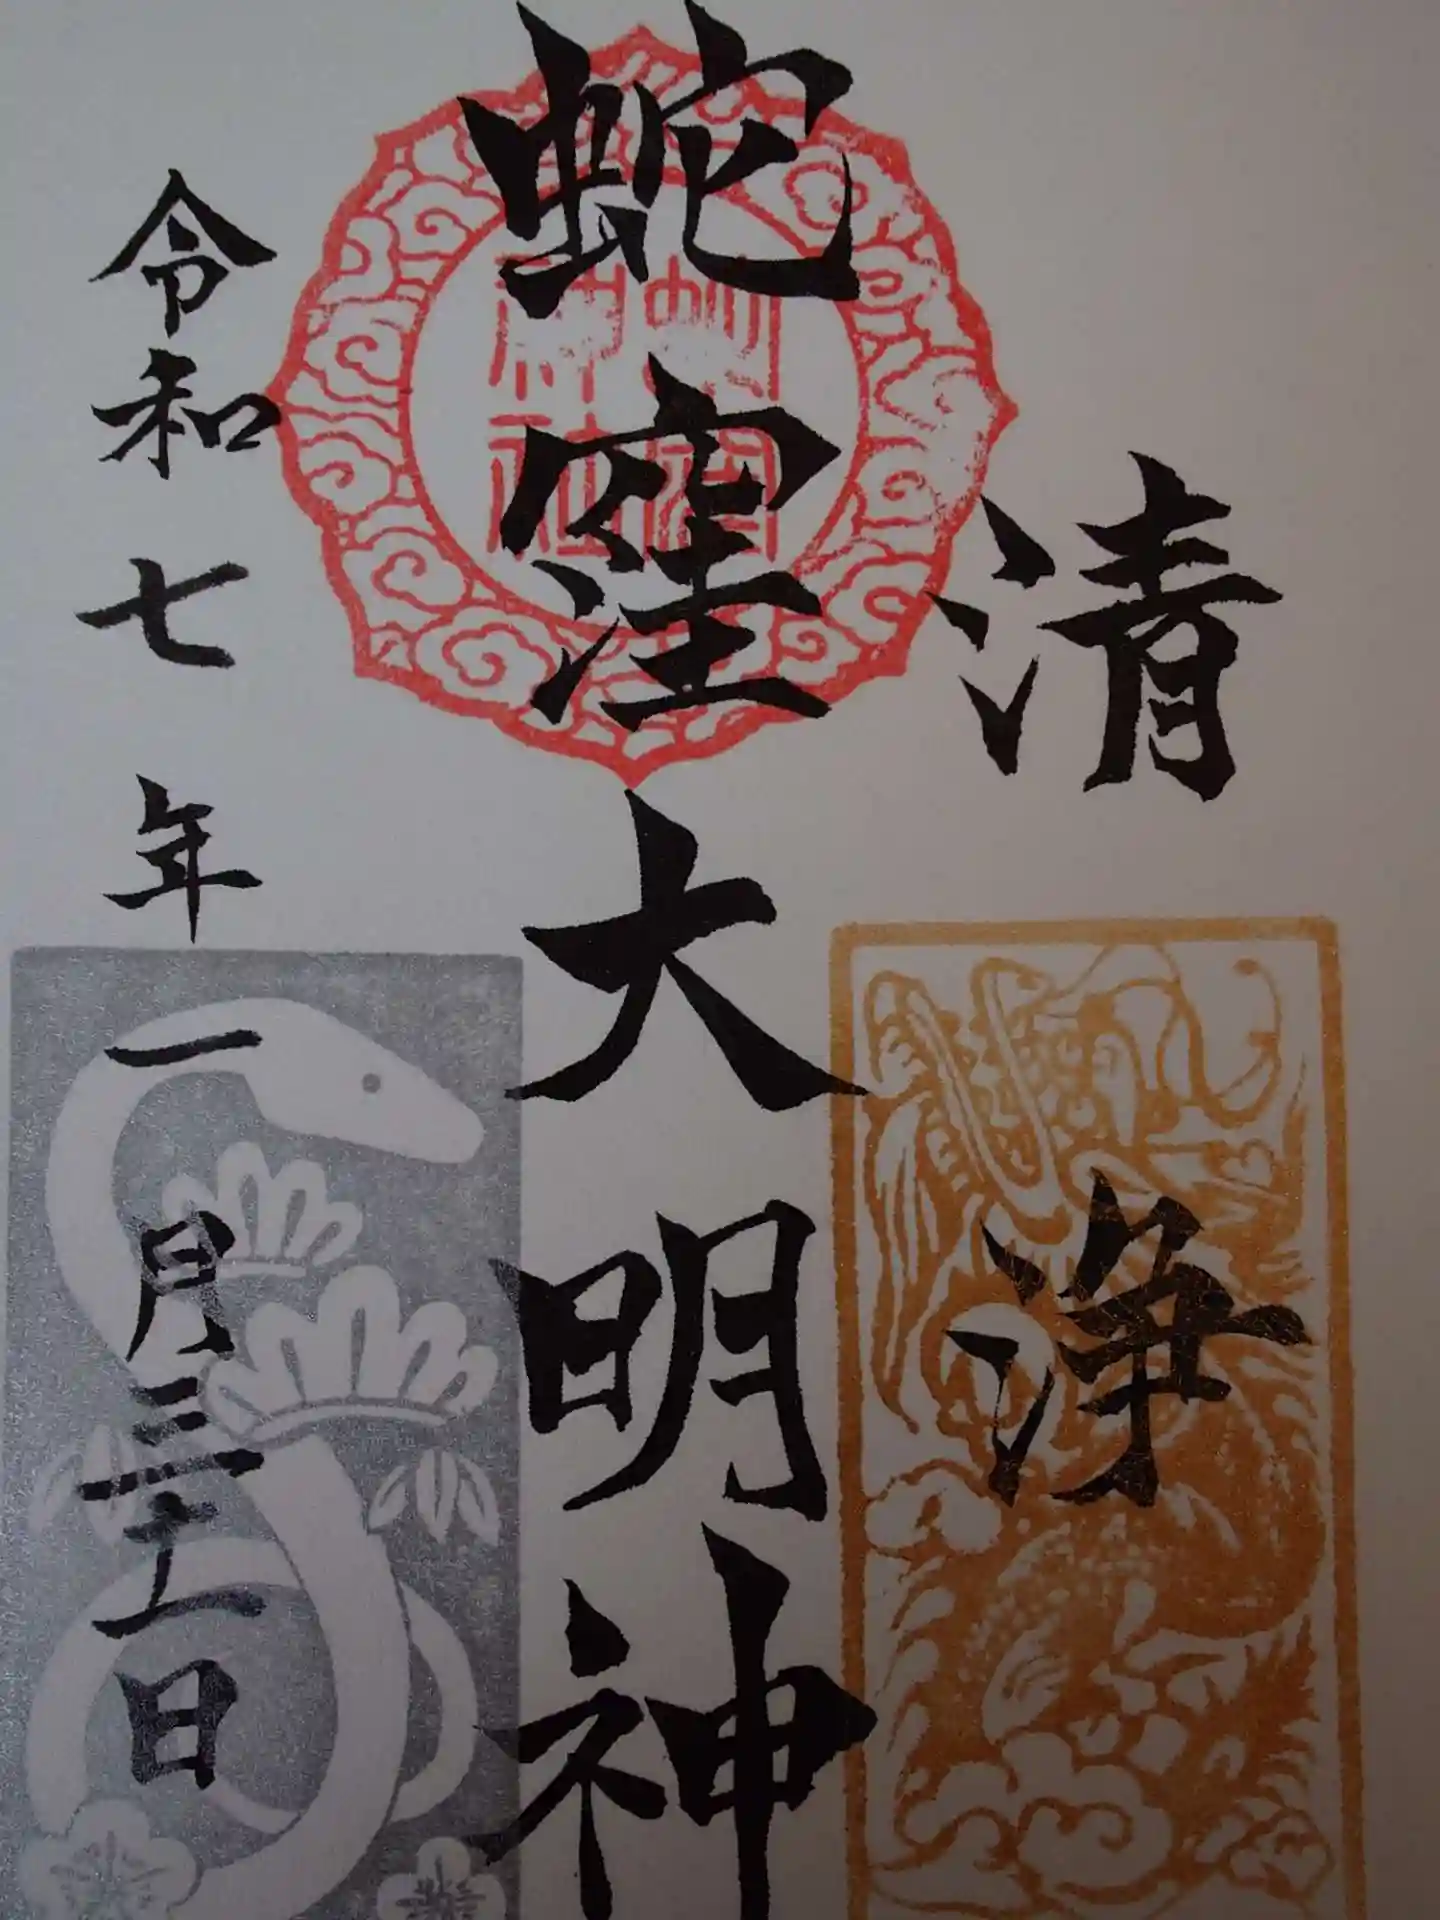 清浄
蛇窪大明神
令和七年一月三十一日
蛇窪
神社